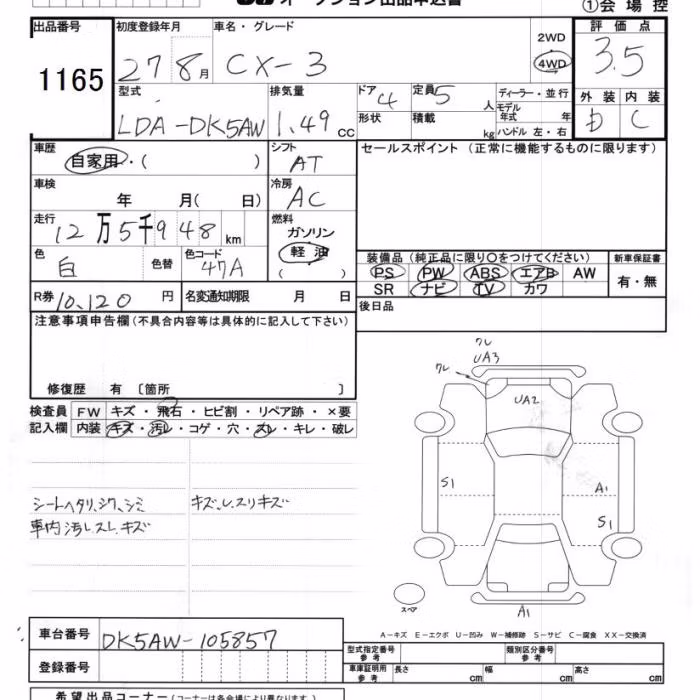 オークション出品申込書
①会場控
出品番号 初度登録年月 車名・グレード 評価点
1165 27 8月 CX-3 2WD 4WD 3.5
型式 排気量 ドア 4 定員 5人 ディーラー・並行 外装 内装
LDA-DK5AW 1.49cc 形状 積載 kg モデル年式 年 C
ハンドル 左・右
車歴 シフト セールスポイント(正常に機能するものに限ります)
自家用・( ) AT
車検 冷房
年 月( 日) AC
走行 燃料
12万5千948km ガソリン
色 色替 色コード 軽油
白 47A ( )
装備品(純正品に限り○をつけてください) 新車保証書
PS PW ABS エアB AW 有・無
SR ナビ TV カワ
R券 10,120円 名変通知期限 月 日 後日品
注意事項申告欄(不具合内容等は具体的に記入して下さい)
修復歴 有 〔箇所 〕
検査員 FW キズ・飛石・ヒビ割・リペア跡・×要
記入欄 内装 キズ・汚レ・コゲ・穴・スレ・キレ・破レ
ワレ
UA3
ワレ
UA2
S1 A1
S1
シートヘタリ、シワ、シミ キズ、レスリキズ
車内汚レスレキズ
スペア A1
A-キズ E-エクボ U-凹み W-補修跡 S-サビ C-腐食 XX-交換済
車台番号 DK5AW-105857
型式指定番号 参考 類別区分番号 参考
登録番号 車庫証明用 参考 長さ cm 幅 cm 高さ cm
希望出品コーナー(コーナーは各会場により異なります)